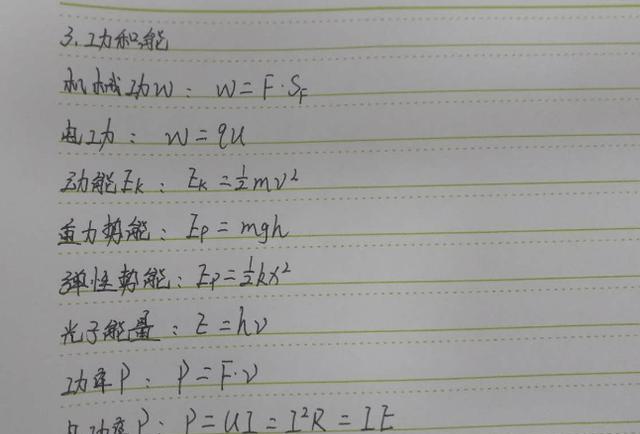 3.功和能
机械功W：W=F·S_F
电功：W=qU
动能E_K：E_K=½mv²
重力势能：E_P=mgh
弹性势能：E_P=½kx²
光子能量：E=hν
功率P：P=F·v
功率P：P=UI=I²R=IE